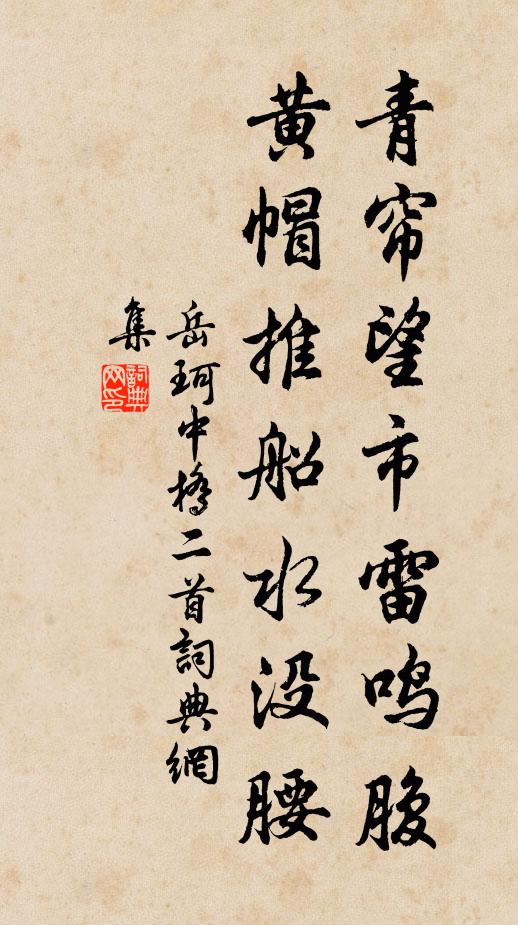 青帘望市雷鸣腹
黄帽推船水没腰
岳珂中橋二首詞典網
集
詞典網印